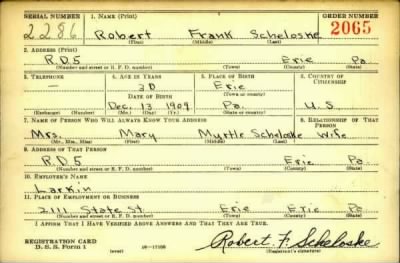 SERIAL NUMBER 1. NAME (Print) ORDER NUMBER
2286 Robert Frank Scheloske 2065
(First) (Middle) (Last)
2. ADDRESS (Print)
R.D.5 Erie Pa.
(Number and street or R. F. D. number) (Town) (County) (State)
3. TELEPHONE 4. AGE IN YEARS 5. PLACE OF BIRTH 6. COUNTRY OF CITIZENSHIP
— 30 Erie
DATE OF BIRTH (Town or county)
Dec. 13 1909 Pa. U.S.
(Exchange) (Number) (Mo.) (Day) (Yr.) (State or country)
7. NAME OF PERSON WHO WILL ALWAYS KNOW YOUR ADDRESS 8. RELATIONSHIP OF THAT PERSON
Mrs. Mary Myrtle Scheloske Wife
(Mr., Mrs., Miss) (First) (Middle) (Last)
9. ADDRESS OF THAT PERSON
R.D.5 Erie Pa.
(Number and street or R. F. D. number) (Town) (County) (State)
10. EMPLOYER'S NAME
Larkin
11. PLACE OF EMPLOYMENT OR BUSINESS
2111 State St Erie Erie Pa.
(Number and street or R. F. D. number) (Town) (County) (State)
I AFFIRM THAT I HAVE VERIFIED ABOVE ANSWERS AND THAT THEY ARE TRUE.
REGISTRATION CARD
D. S. S. Form 1 (over) Robert F. Scheloske
(Registrant's signature)